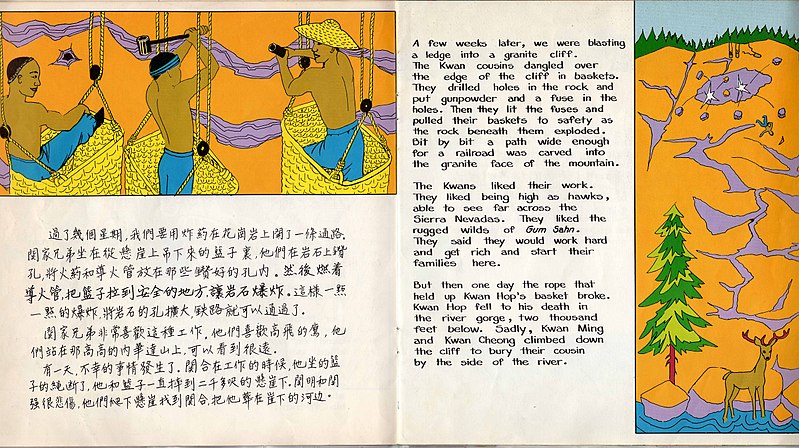 過了幾個星期,我們要用炸药在花崗岩上開了一條通路.
関家兄弟坐在從懸崖上吊下來的籃子裏,他們在岩石上鑽
孔,將火葯和導火管放在那些鑽好的孔内。然後燃着
導火管,把籃子拉到安全的地方,讓岩石爆炸。這樣一點
一點的爆炸,將岩石的孔擴大,鉄路就可以通過了.
関家兄弟非常喜歡這種工作,他們喜歡高飛的鷹,他
們站在那高高的内華達山上,可以看到很遠.
有一天,不幸的事情發生了.関合在工作的時候,他坐的籃
子的繩断了,他和籃子一直掉到二千多呎的懸崖下.関明和関
強很悲傷,他們爬下懸崖找到関合,把他葬在崖下的河边.
A few weeks later, we were blasting
a ledge into a granite cliff.
The Kwan cousins dangled over
the edge of the cliff in baskets.
They drilled holes in the rock and
put gunpowder and a fuse in the
holes. Then they lit the fuses and
pulled their baskets to safety as
the rock beneath them exploded.
Bit by bit a path wide enough
for a railroad was carved into
the granite face of the mountain.
The Kwans liked their work.
They liked being high as hawks,
able to see far across the
Sierra Nevadas. They liked the
rugged wilds of Gum Sahn.
They said they would work hard
and get rich and start their
families here.
But then one day the rope that
held up Kwan Hop's basket broke.
Kwan Hop fell to his death in
the river gorge, two thousand
feet below. Sadly, Kwan Ming
and Kwan Cheong climbed down
the cliff to bury their cousin
by the side of the river.